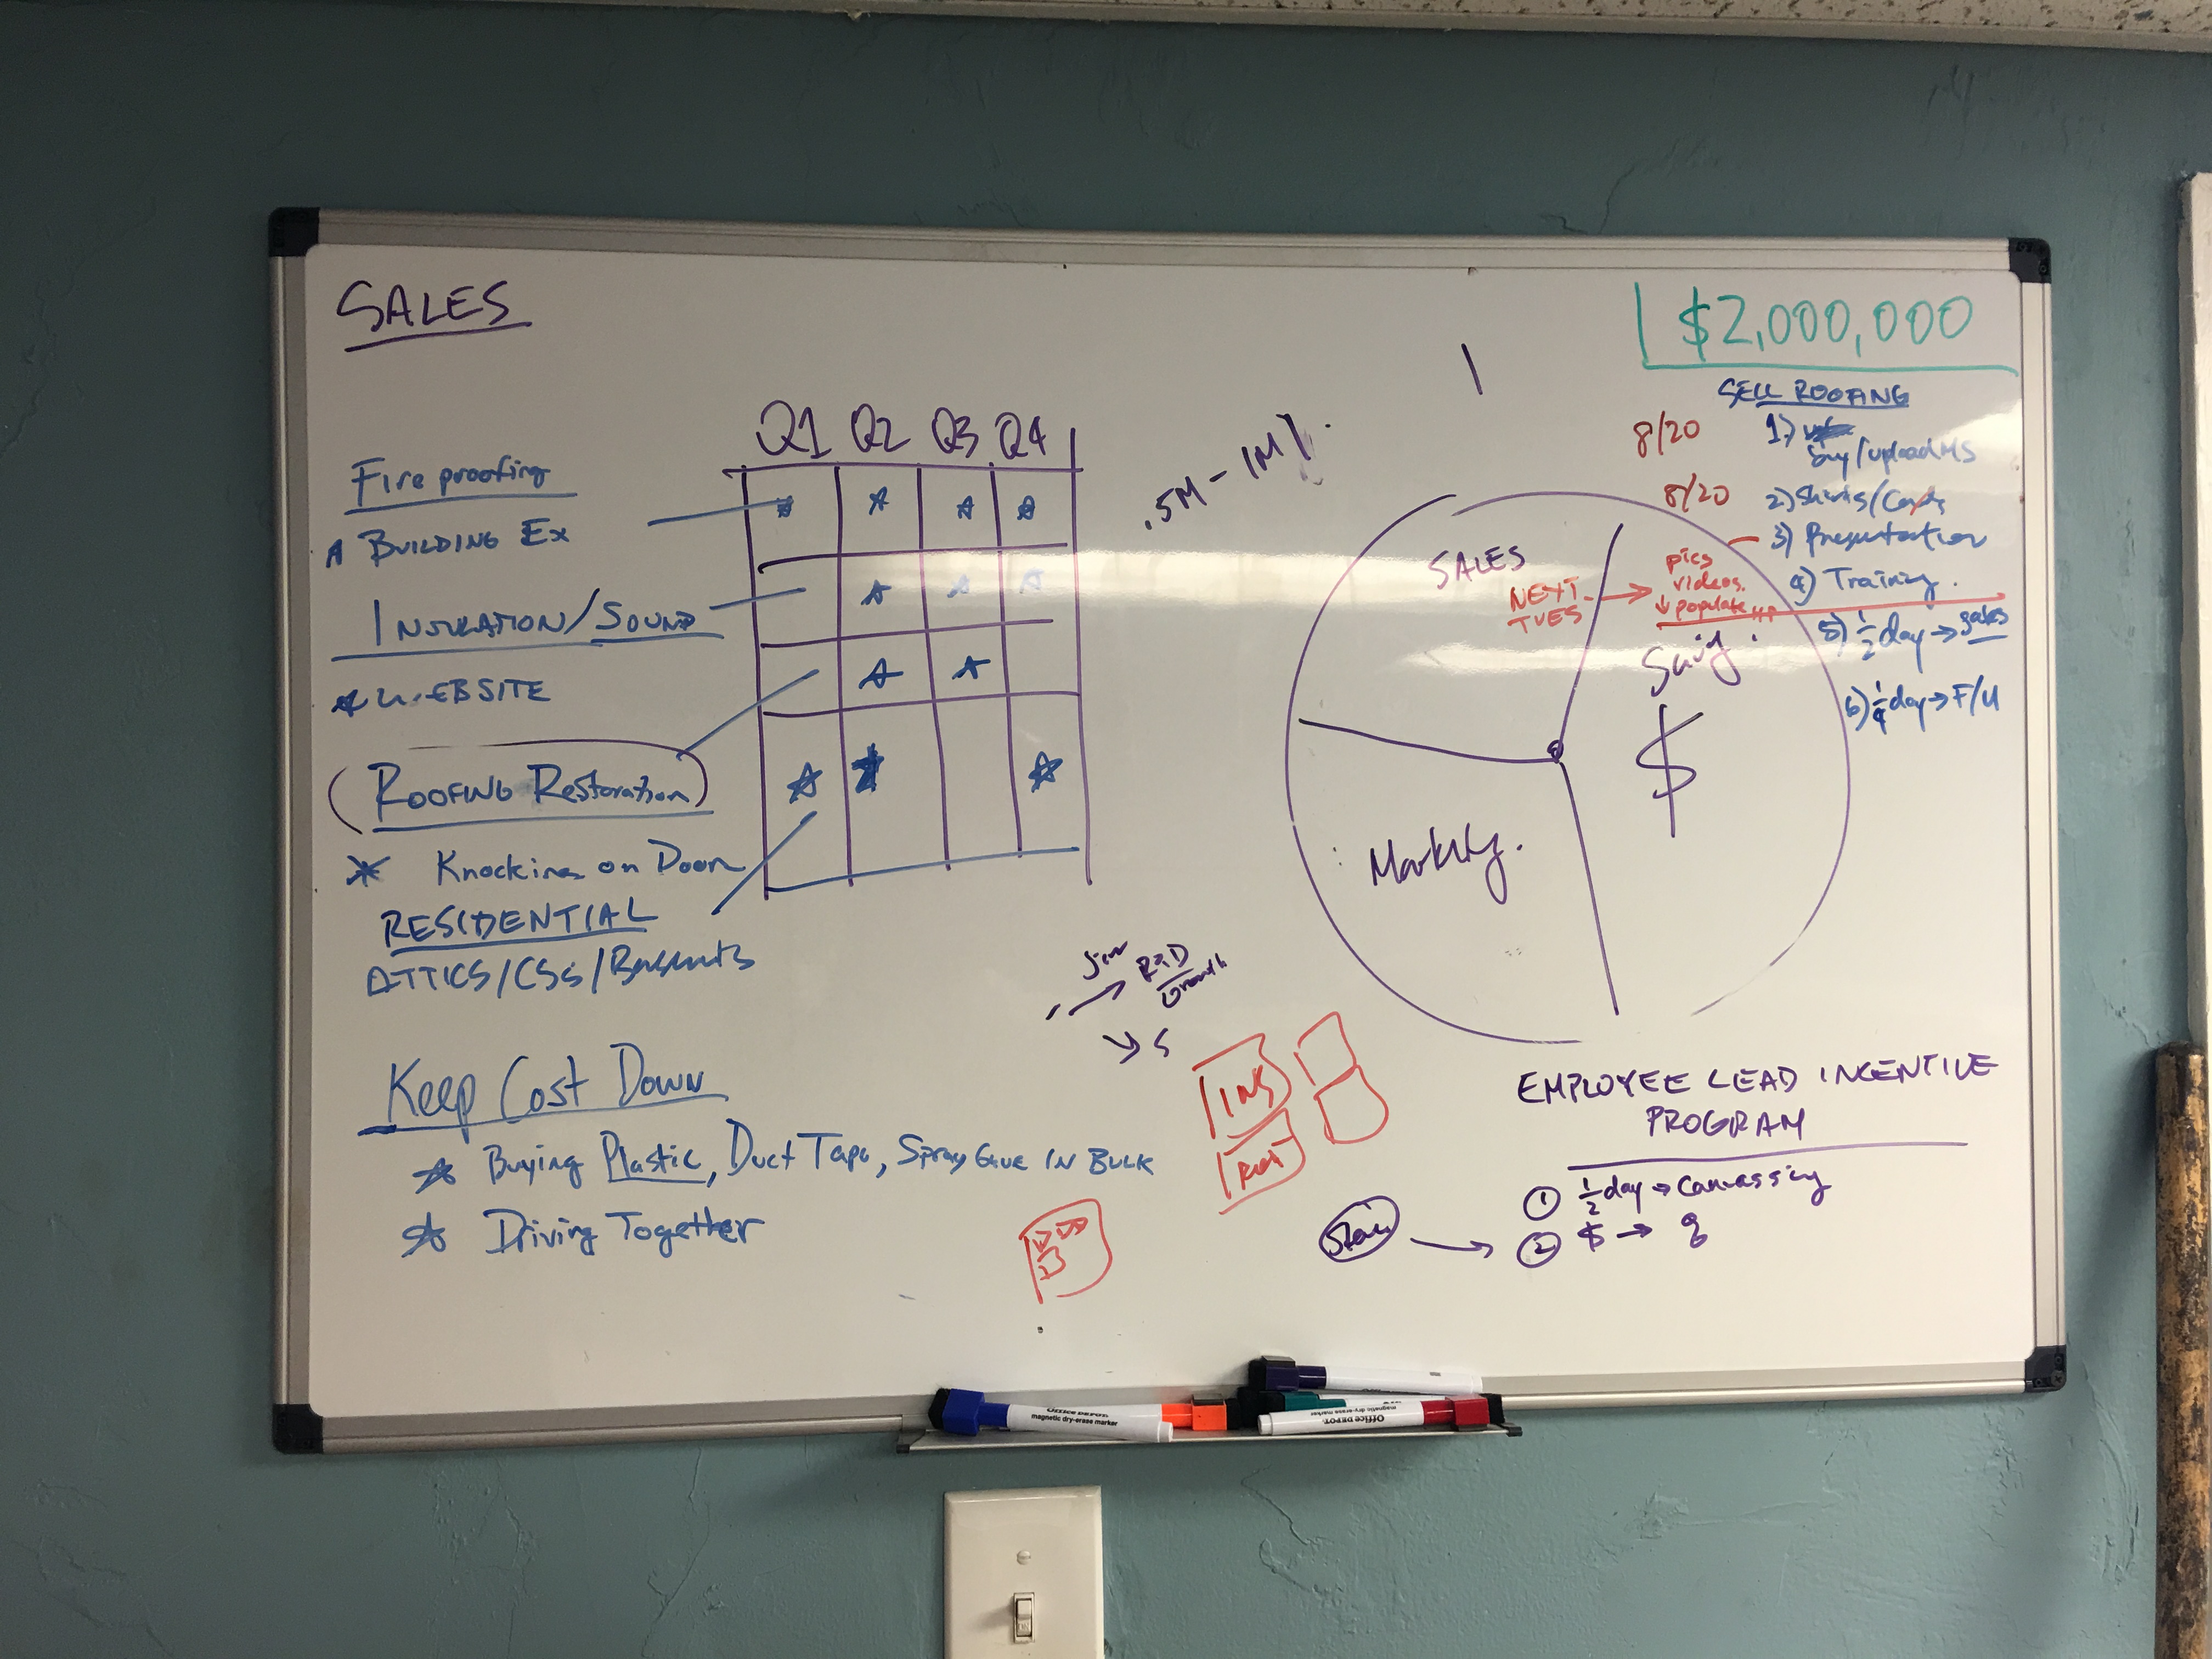 SALES
$2,000,000
SELL ROOFING
8/20 1)
Buy/upload
8/20 2)
3) Presentation
4) Training.
5) 1/2 day → sales
6) 1/4 day → F/U
Q1 Q2 Q3 Q4
Fire proofing
BUILDING EX
INSULATION/SOUND
WEBSITE
ROOFING Restoration
Knocking on Door
RESIDENTIAL
ATTICS/CSs/Basements
.5M - 1M
SALES
NEXT
TUES
pics
videos.
populate
$
Keep Cost Down
Buying Plastic, Duct Tape, Spray Glue IN BULK
Driving Together
R&D
Growth
INS
EMPLOYEE LEAD INCENTIVE
PROGRAM
① 1/2 day → Canvassing
② $ →
OFFICE DEPOT.
magnetic dry-erase marker
Office DEPOT.
magnetic dry-erase marker